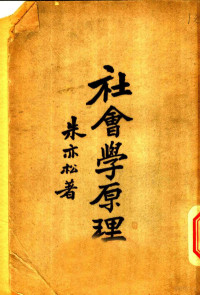 社會學原理
朱亦松著